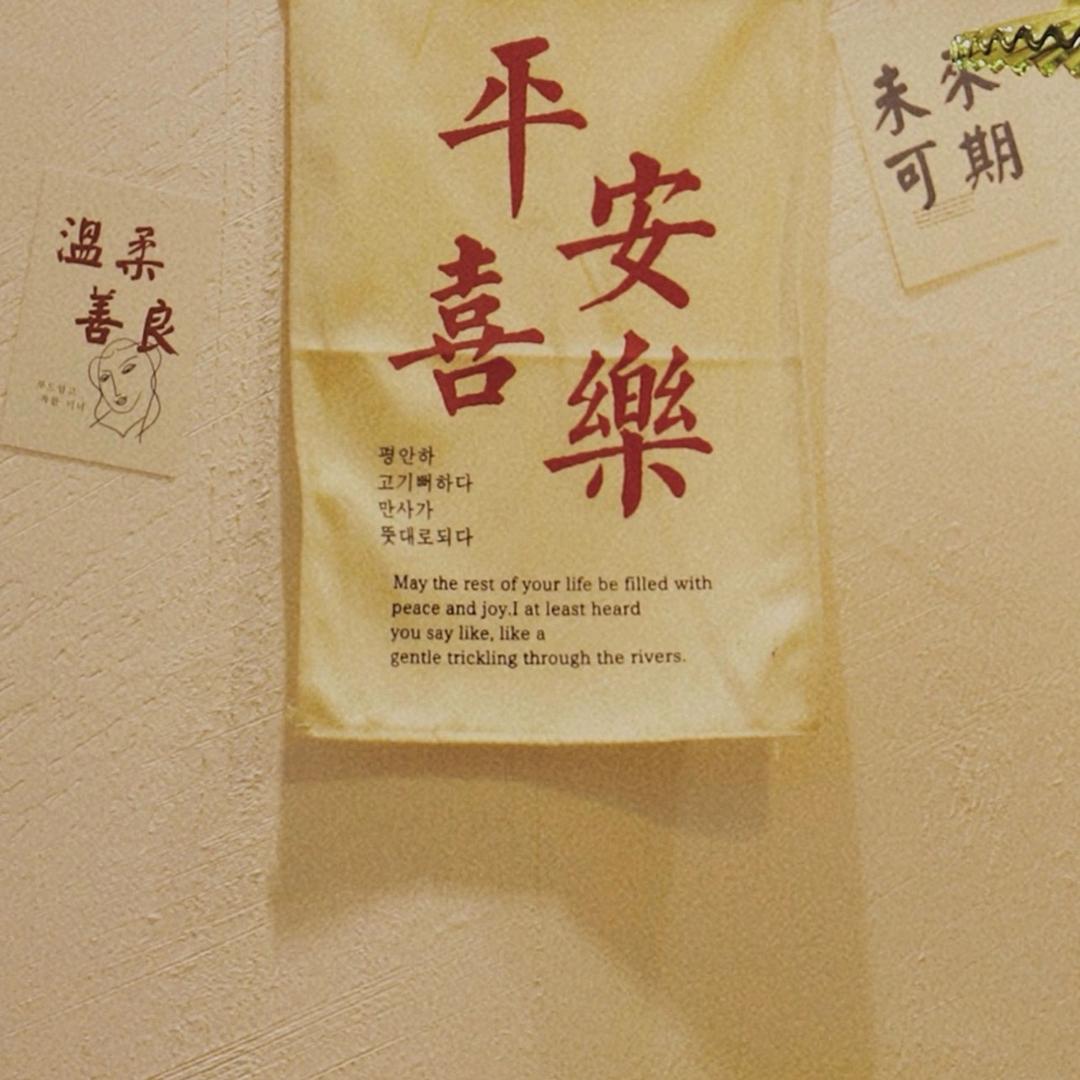 溫柔
善良
부드럽고
착한 미녀
平
安
喜
樂
평안하
고기뻐하다
만사가
뜻대로되다
May the rest of your life be filled with
peace and joy.I at least heard
you say like, like a
gentle trickling through the rivers.
未來
可期